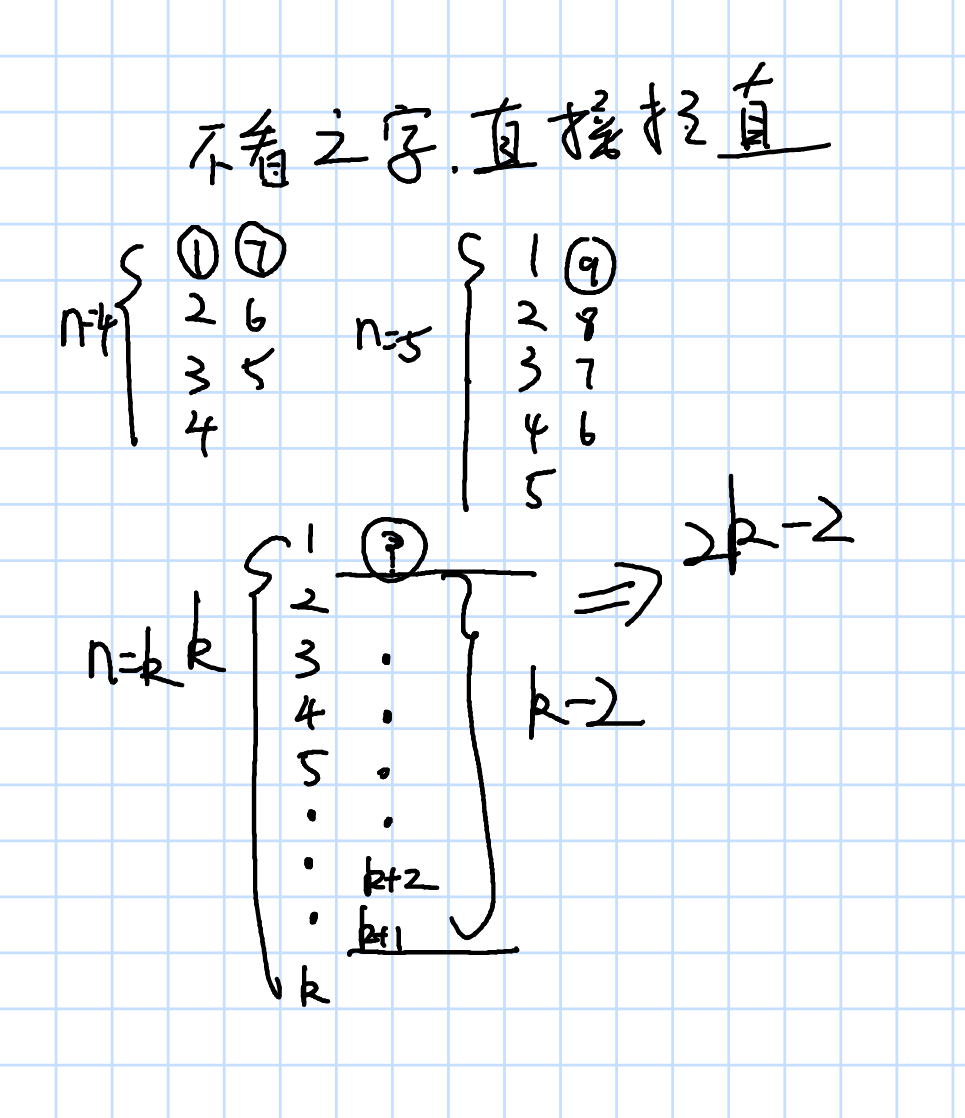 不看之字.直接拉直
n=4
① ⑦
2 6
3 5
4
n=5
1 ⑨
2 8
3 7
4 6
5
n=k
k
1 ?
2
3 .
4 .
5 .
. .
. k+2
. k+1
k
k-2
⇒ 2k-2